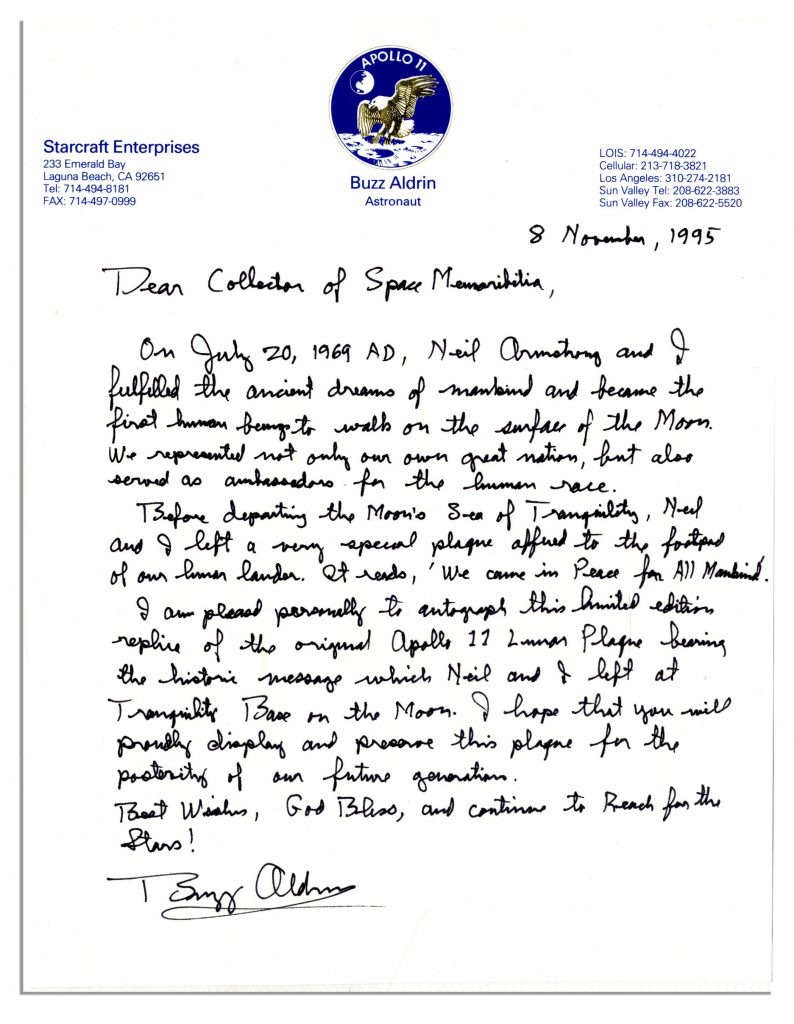 APOLLO 11
Starcraft Enterprises
233 Emerald Bay
Laguna Beach, CA 92651
Tel: 714-494-8181
FAX: 714-497-0999
Buzz Aldrin
Astronaut
LOIS: 714-494-4022
Cellular: 213-718-3821
Los Angeles: 310-274-2181
Sun Valley Tel: 208-622-3883
Sun Valley Fax: 208-622-5520
8 November, 1995
Dear Collector of Space Memoribilia,
On July 20, 1969 AD, Neil Armstrong and I
fulfilled the ancient dreams of mankind and became the
first human beings to walk on the surface of the Moon.
We represented not only our own great nation, but also
served as ambassadors for the human race.
Before departing the Moon's Sea of Tranquility, Neil
and I left a very special plaque affixed to the footpad
of our lunar lander. It reads, 'We came in Peace for All Mankind'.
I am pleased personally to autograph this limited edition
replica of the original Apollo 11 Lunar Plaque bearing
the historic message which Neil and I left at
Tranquility Base on the Moon. I hope that you will
proudly display and preserve this plaque for the
posterity of our future generation.
Best Wishes, God Bless, and continue to Reach for the
Stars!
Buzz Aldrin